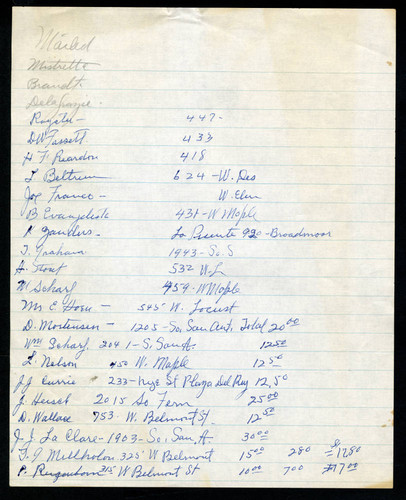 Mailed
Mistretta
Brandt.
Delafazzie.
Royster - 447-
D W Fassett. 433
H F. Reardon 418
L Beltram 624 - W. Des
Joe Franco - W. Elm
B. Evangeliste 431 - W Maple
Sanders - La Puente 920 - Broadmoor
T. Graham 1943 - So. S
H. Trout 532 W. L
W Scharf 459 - W Maple
Mr E. Horn - 545 W. Locust
D. Mortensen - 1205 - So. San Ant. Total 20 00
Wm Scharf. 204 1 - S. San A. 12 50
L. Nelson 450 W. Maple 12 50
J.J. Currie 233 - St Playa Del Rey 12,50
J. Heiset 2015 So Fern 25 00
D. Wallace 753. W. Belmont St. 12 50
J. J. La Clare - 1903 - So. San A. 30 00
F. J Millholon 325 W Belmont 15 00 280 = 17 80
P. 215 W Belmont St 10 00 700 = 17 00